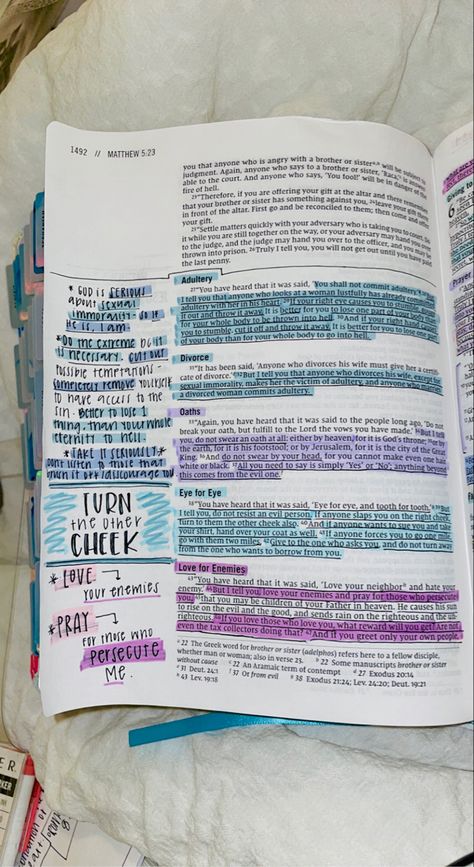 1492 // MATTHEW 5:23
you that anyone who is angry with a brother or sister will be subject to
judgment. Again, anyone who says to a brother or sister, 'Raca,' is answer-
able to the court. And anyone who says, 'You fool!' will be in danger of the
fire of hell.
23"Therefore, if you are offering your gift at the altar and there remember
that your brother or sister has something against you, 24leave your gift there
in front of the altar. First go and be reconciled to them; then come and offer
your gift.
25"Settle matters quickly with your adversary who is taking you to court. Do
it while you are still together on the way, or your adversary may hand you
over to the judge, and the judge may hand you over to the officer, and you may be
thrown into prison. 26Truly I tell you, you will not get out until you have paid
the last penny.
Adultery
27"You have heard that it was said, 'You shall not commit adultery.' 28But
I tell you that anyone who looks at a woman lustfully has already committed
adultery with her in his heart. 29If your right eye causes you to stumble,
gouge it out and throw it away. It is better for you to lose one part of your body
than for your whole body to be thrown into hell. 30And if your right hand causes
you to stumble, cut it off and throw it away. It is better for you to lose one part
of your body than for your whole body to go into hell.
Divorce
31"It has been said, 'Anyone who divorces his wife must give her a certifi-
cate of divorce.' 32But I tell you that anyone who divorces his wife, except for
sexual immorality, makes her the victim of adultery, and anyone who marries
a divorced woman commits adultery.
Oaths
33"Again, you have heard that it was said to the people long ago, 'Do not
break your oath, but fulfill to the Lord the vows you have made.' 34But I tell
you, do not swear an oath at all: either by heaven, for it is God's throne; 35or by
the earth, for it is his footstool; or by Jerusalem, for it is the city of the Great
King. 36And do not swear by your head, for you cannot make even one hair
white or black. 37All you need to say is simply 'Yes' or 'No'; anything beyond
this comes from the evil one.
Eye for Eye
38"You have heard that it was said, 'Eye for eye, and tooth for tooth.' 39But
I tell you, do not resist an evil person. If anyone slaps you on the right cheek,
turn to them the other cheek also. 40And if anyone wants to sue you and take
your shirt, hand over your coat as well. 41If anyone forces you to go one mile,
go with them two miles. 42Give to the one who asks you, and do not turn away
from the one who wants to borrow from you.
Love for Enemies
43"You have heard that it was said, 'Love your neighbor and hate your
enemy.' 44But I tell you, love your enemies and pray for those who persecute
you, 45that you may be children of your Father in heaven. He causes his sun
to rise on the evil and the good, and sends rain on the righteous and the un-
righteous. 46If you love those who love you, what reward will you get? Are not
even the tax collectors doing that? 47And if you greet only your own people,
a 22 The Greek word for brother or sister (adelphos) refers here to a fellow disciple,
whether man or woman; also in verse 23. b 22 Some manuscripts brother or sister
without cause c 22 An Aramaic term of contempt d 27 Exodus 20:14
e 31 Deut. 24:1 f 37 Or from evil g 38 Exodus 21:24; Lev. 24:20; Deut. 19:21
h 43 Lev. 19:18
* GOD IS SERIOUS
about sexual
immorality - so if
He is, I am
* DO the extreme of it
is necessary. Cut out
possible temptations -
completely remove yourself
to have access to the
sin - better to lose 1
thing, than your whole
eternity to hell.
* TAKE IT SERIOUSLY *
TURN
the other
CHEEK
* LOVE
your enemies
* PRAY
for those who
PERSECUTE
ME.